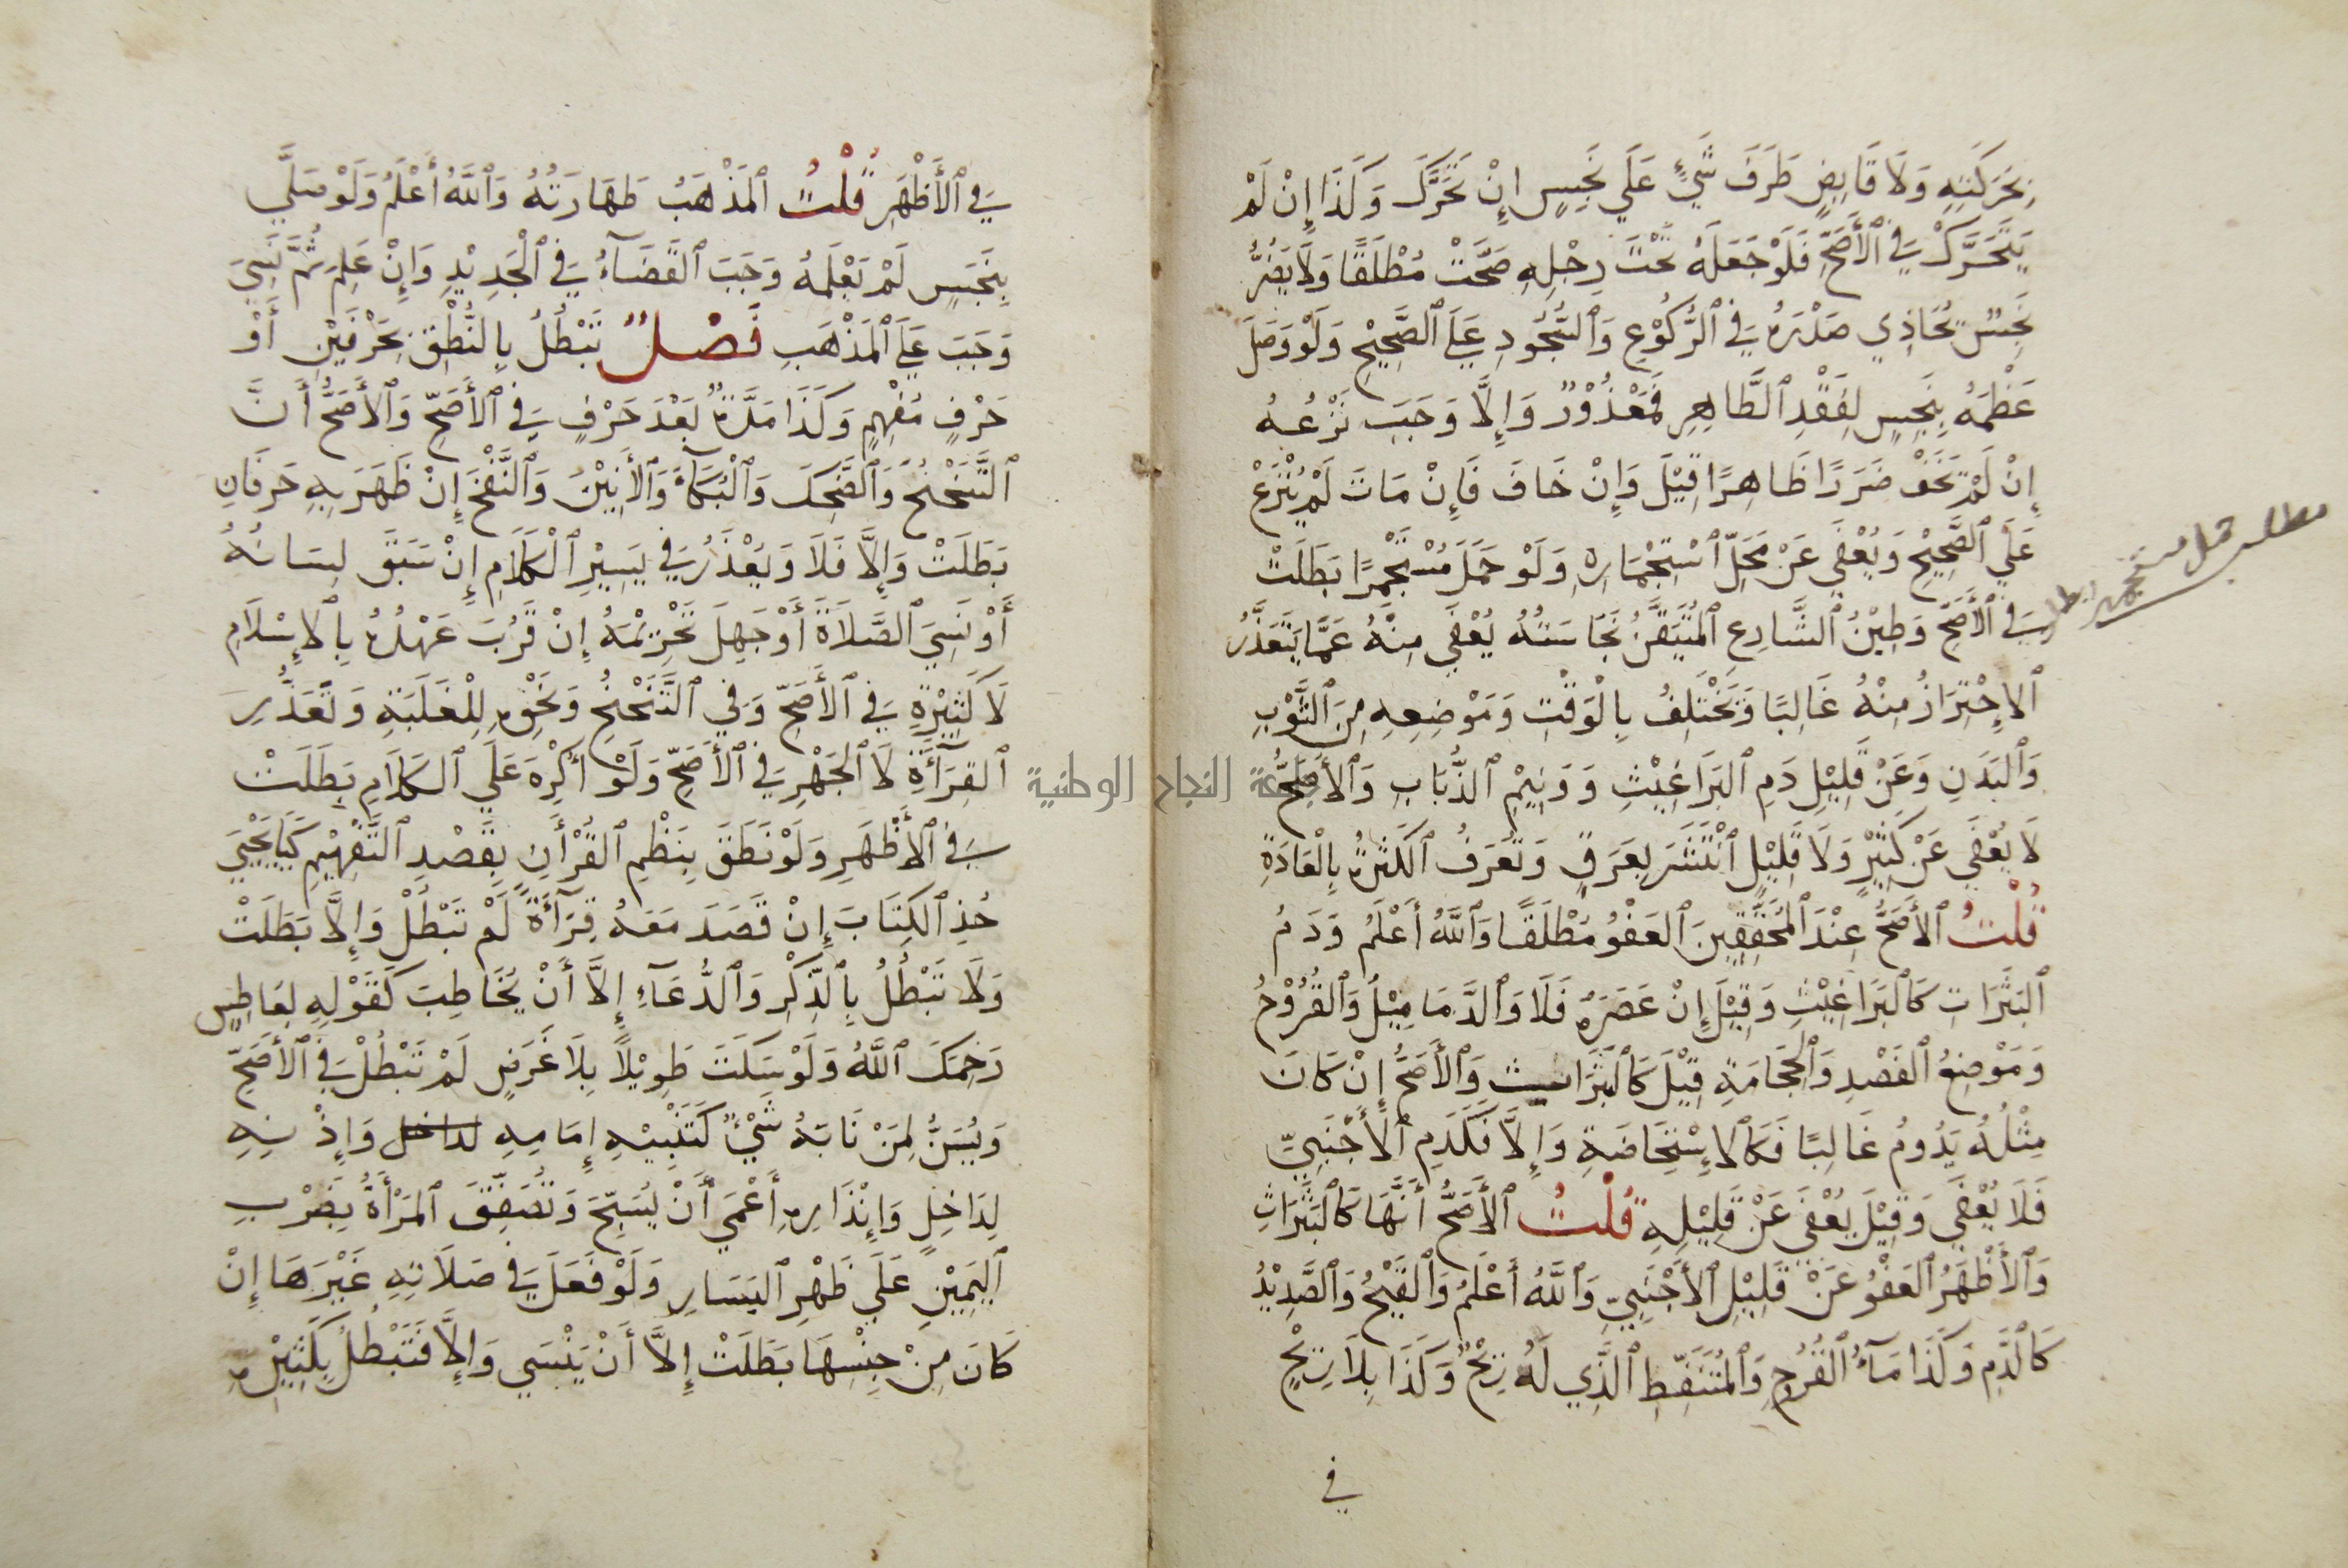 بِحَرَكَتِهِ وَلَا قَابِضٍ طَرَفَ شَيْءٍ عَلَي نَجِسٍ إِنْ تَحَرَّكَ وَكَذَا إِنْ لَمْ
يَتَحَرَّكْ فِي ٱلْأَصَحِّ فَلَوْ جَعَلَهُ تَحْتَ رِجْلِهِ صَحَّتْ مُطْلَقًا وَلَا يَضُرُّ
نَجِسٌ يُحَاذِي صَدْرَهُ فِي ٱلرُّكُوْعِ وَٱلسُّجُودِ عَلَي ٱلصَّحِيْحِ وَلَوْ وَصَلَ
عَظْمَهُ بِنَجِسٍ لِفَقْدِ ٱلطَّاهِرِ فَمَعْذُوْرٌ وَإِلَّا وَجَبَ نَزْعُهُ
إِنْ لَمْ يَخَفْ ضَرَرًا ظَاهِرًا قِيْلَ وَإِنْ خَافَ فَإِنْ مَاتَ لَمْ يُنْزَعْ
عَلَي ٱلصَّحِيْحِ وَيُعْفَي عَنْ مَحَلِّ ٱسْتِجْمَارِهِ وَلَوْ حَمَلَ مُسْتَجْمِرًا بَطَلَتْ
فِي ٱلْأَصَحِّ وَطِيْنُ ٱلشَّارِعِ ٱلْمُتَيَقَّنُ نَجَاسَتُهُ يُعْفَي مِنْهُ عَمَّا يَتَعَذَّرُ
ٱلإِحْتِرَازُ مِنْهُ غَالِبًا وَيَخْتَلِفُ بِٱلْوَقْتِ وَمَوْضِعِهِ مِنَ ٱلثَّوْبِ
وَٱلْبَدَنِ وَعَنْ قَلِيْلِ دَمِ ٱلبَرَاغِيْثِ وَوَنِيْمِ ٱلذُّبَابِ وَٱلأَصَحُّ
لَا يُعْفَي عَنْ كَثِيْرٍ وَلَا قَلِيْلٍ ٱنْتَشَرَ بِعَرَقٍ وَتُعْرَفُ ٱلْكَثْرَةُ بِٱلْعَادَةِ
قُلْتُ ٱلأَصَحُّ عِنْدَ ٱلْمُحَقِّقِينَ ٱلعَفْوُ مُطْلَقًا وَٱللَّهُ أَعْلَمُ وَدَمُ
ٱلبَثَرَاتِ كَٱلْبَرَاغِيْثِ وَقِيْلَ إِنْ عَصَرَهُ فَلَا وَٱلدَّمَامِيْلُ وَٱلْقُرُوْحُ
وَمَوْضِعُ ٱلفَصْدِ وَٱلْحِجَامَةِ قِيْلَ كَٱلْبَثَرَاتِ وَٱلْأَصَحُّ إِنْ كَانَ
مِثْلُهُ يَدُومُ غَالِبًا فَكَٱلإِسْتِحَاضَةِ وَإِلَّا فَكَدَمِ ٱلأَجْنَبِيِّ
فَلَا يُعْفَي وَقِيْلَ يُعْفَي عَنْ قَلِيْلِهِ قُلْتُ ٱلأَصَحُّ أَنَّهَا كَٱلْبَثَرَاتِ
وَٱلأَظْهَرُ ٱلعَفْوُ عَنْ قَلِيْلِ ٱلأَجْنَبِيِّ وَٱللَّهُ أَعْلَمُ وَٱلْقَيْحُ وَٱلصَّدِيْدُ
كَٱلدَّمِ وَكَذَا مَآءُ ٱلْقُرُوحِ وَٱلْمُتَنَفِّطِ ٱلَّذِي لَهُ رِيْحٌ وَكَذَا بِلَا رِيْحٍ
في
مطلب حمل مستجمر
فِي ٱلأَظْهَرِ قُلْتُ ٱلمَذْهَبُ طَهَارَتُهُ وَٱللَّهُ أَعْلَمُ وَلَوْ صَلَّي
بِنَجَسٍ لَمْ يَعْلَمْهُ وَجَبَ ٱلقَضَآءُ فِي ٱلْجَدِيْدِ وَإِنْ عَلِمَ ثُمَّ نَسِيَ
وَجَبَ عَلَي ٱلْمَذْهَبِ فَصْلٌ تَبْطُلُ بِالنُّطْقِ بِحَرْفَيْنِ أَوْ
حَرْفٍ مُفْهِمٍ وَكَذَا مَدَّةٌ بَعْدَ حَرْفٍ فِي ٱلأَصَحِّ وَٱلأَصَحُّ أَنَّ
ٱلتَّنَحْنُحَ وَٱلضَّحِكَ وَٱلْبُكَآءَ وَٱلأَنِيْنَ وَٱلنَّفْخَ إِنْ ظَهَرَ بِهِ حَرْفَانِ
بَطَلَتْ وَإِلَّا فَلَا وَيُعْذَرُ فِي يَسِيْرِ ٱلْكَلَامِ إِنْ سَبَقَ لِسَانُهُ
أَوْ نَسِيَ ٱلصَّلَاةَ أَوْ جَهِلَ تَحْرِيْمَهُ إِنْ قَرُبَ عَهْدُهُ بِٱلإِسْلَامِ
لَا كَثِيْرِهِ فِي ٱلأَصَحِّ وَفِي ٱلتَّنَحْنُحِ وَنَحْوِهِ لِلْغَلَبَةِ وَتَعَذُّرِ
ٱلقِرَآءَةِ لَا ٱلْجَهْرِ فِي ٱلأَصَحِّ وَلَوْ أُكْرِهَ عَلَي ٱلكَلَامِ بَطَلَتْ
فِي ٱلأَظْهَرِ وَلَوْ نَطَقَ بِنَظْمِ ٱلقُرْأَنِ بِقَصْدِ ٱلتَّفْهِيْمِ كَيَايَحْيَي
خُذِ ٱلكِتَابَ إِنْ قَصَدَ مَعَهُ قِرَآءَةً لَمْ تَبْطُلْ وَإِلَّا بَطَلَتْ
وَلَا تَبْطُلُ بِٱلذِّكْرِ وَٱلدُّعَآءِ إِلَّا أَنْ يُخَاطِبَ كَقَوْلِهِ لِعَاطِسٍ
رَحِمَكَ ٱللَّهُ وَلَوْ سَكَتَ طَوِيْلًا بِلَا غَرَضٍ لَمْ تَبْطُلْ فِي ٱلأَصَحِّ
وَيُسَنُّ لِمَنْ نَابَهُ شَيْءٌ كَتَنْبِيْهِ إِمَامِهِ لداخل وَإِذْنِهِ
لِدَاخِلٍ وَإِنْذَارِهِ أَعْمَي أَنْ يُسَبِّحَ وَتُصَفِّقَ ٱلمَرْأَةُ بِضَرْبِ
ٱليَمِيْنِ عَلَي ظَهْرِ ٱليَسَارِ وَلَوْ فَعَلَ فِي صَلَاتِهِ غَيْرَهَا إِنْ
كَانَ مِنْ جِنْسِهَا بَطَلَتْ إِلَّا أَنْ يَنْسَي وَإِلَّا فَتَبْطُلُ بِكَثِيْرِهِ
جامعة النجاح الوطنية